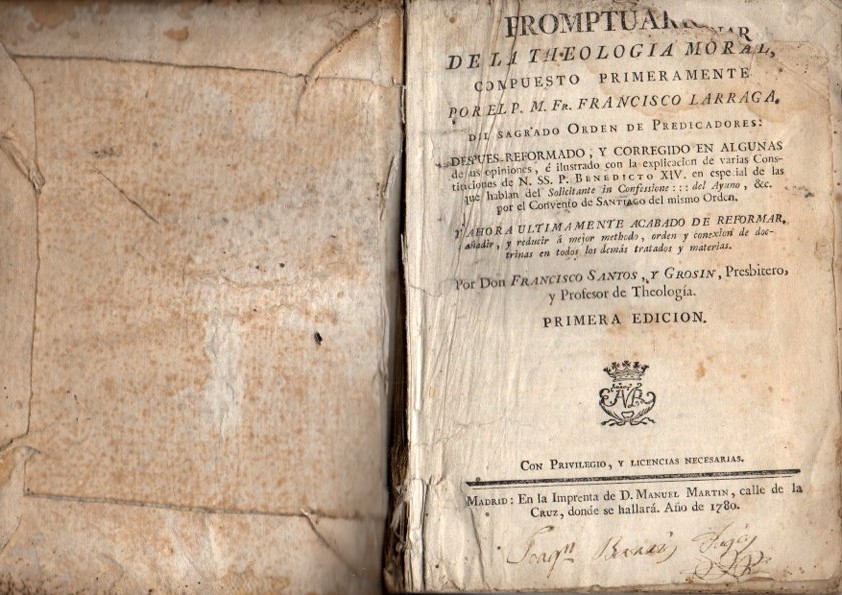 PROMPTUAR
DE LA THEOLOGIA MORAL,
COMPUESTO PRIMERAMENTE
POR EL P. M. FR. FRANCISCO LARRAGA,
DEL SAGRADO ORDEN DE PREDICADORES:
DESPUES REFORMADO, Y CORREGIDO EN ALGUNAS
de sus opiniones, é ilustrado con la explicacion de varias Cons-
tituciones de N. SS. P. BENEDICTO XIV. en especial de las
que hablan del Solicitante in Confessione ::: del Ayuno, &c.
por el Convento de SANTIAGO del mismo Orden.
Y AHORA ULTIMAMENTE ACABADO DE REFORMAR,
añadir, y reducir á mejor methodo, orden y conexîon de doc-
trinas en todos los demás tratados y materias.
Por DON FRANCISCO SANTOS, Y GROSIN, Presbitero,
y Profesor de Theología.
PRIMERA EDICION.
CON PRIVILEGIO, Y LICENCIAS NECESARIAS.
MADRID: En la Imprenta de D. MANUEL MARTIN, calle de la
CRUZ, donde se hallará. Año de 1780.